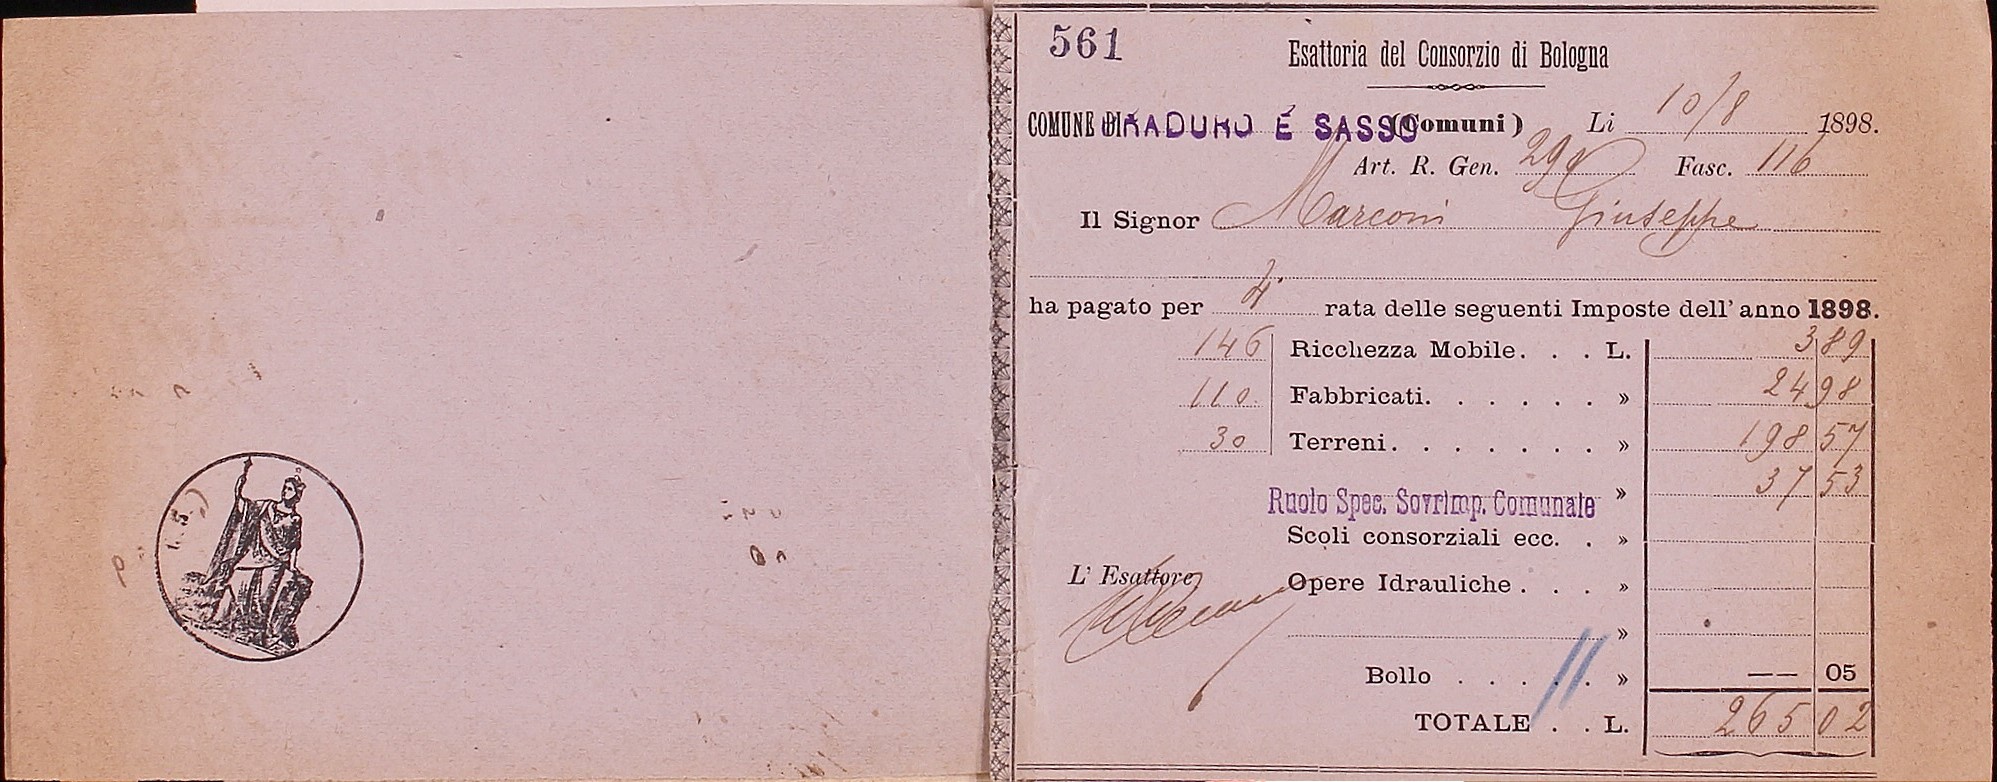 561
Esattoria del Consorzio di Bologna
COMUNE DI PRADURO E SASSO (Comuni) Li 10/8 1898.
Art. R. Gen. Fasc. 116
Il Signor Marconi Giuseppe
ha pagato per 4ª rata delle seguenti Imposte dell' anno 1898.
146 Ricchezza Mobile. . . L. 3 89
110 Fabbricati. . . . . . » 24 98
30 Terreni. . . . . . . » 198 57
Ruolo Spec. Sovrimp. Comunale » 37 53
Scoli consorziali ecc. . »
L' Esattore
Opere Idrauliche . . . »
»
Bollo . . . . . » —— 05
TOTALE . . L. 265 02